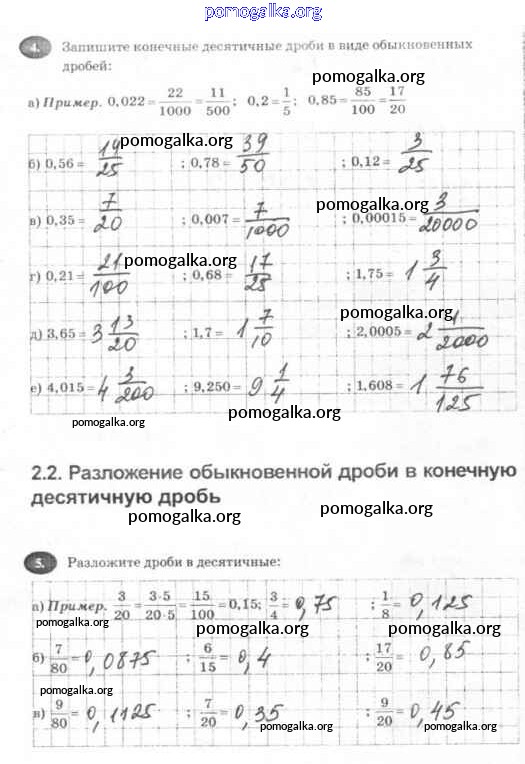 pomogalka.org
4. Запишите конечные десятичные дроби в виде обыкновенных
дробей:
pomogalka.org
а) Пример. 0,022 = 22/1000 = 11/500; 0,2 = 1/5; 0,85 = 85/100 = 17/20
pomogalka.org pomogalka.org
б) 0,56 = 14/25 ; 0,78 = 39/50 ; 0,12 = 3/25
pomogalka.org
в) 0,35 = 7/20 ; 0,007 = 7/1000 ; 0,00015 = 3/20000
pomogalka.org
г) 0,21 = 21/100 ; 0,68 = 17/25 ; 1,75 = 1 3/4
pomogalka.org
д) 3,65 = 3 13/20 ; 1,7 = 1 7/10 ; 2,0005 = 2 1/2000
е) 4,015 = 4 3/200 ; 9,250 = 9 1/4 ; 1,608 = 1 76/125
pomogalka.org
pomogalka.org
2.2. Разложение обыкновенной дроби в конечную
десятичную дробь
pomogalka.org pomogalka.org
5. Разложите дроби в десятичные:
pomogalka.org
а) Пример. 3/20 = 3·5/20·5 = 15/100 = 0,15; 3/4 = 0,75 ; 1/8 = 0,125
pomogalka.org pomogalka.org
б) 7/80 = 0,0875 ; 6/15 = 0,4 ; 17/20 = 0,85
pomogalka.org
в) 9/80 = 0,1125 ; 7/20 = 0,35 ; 9/20 = 0,45
pomogalka.org pomogalka.org